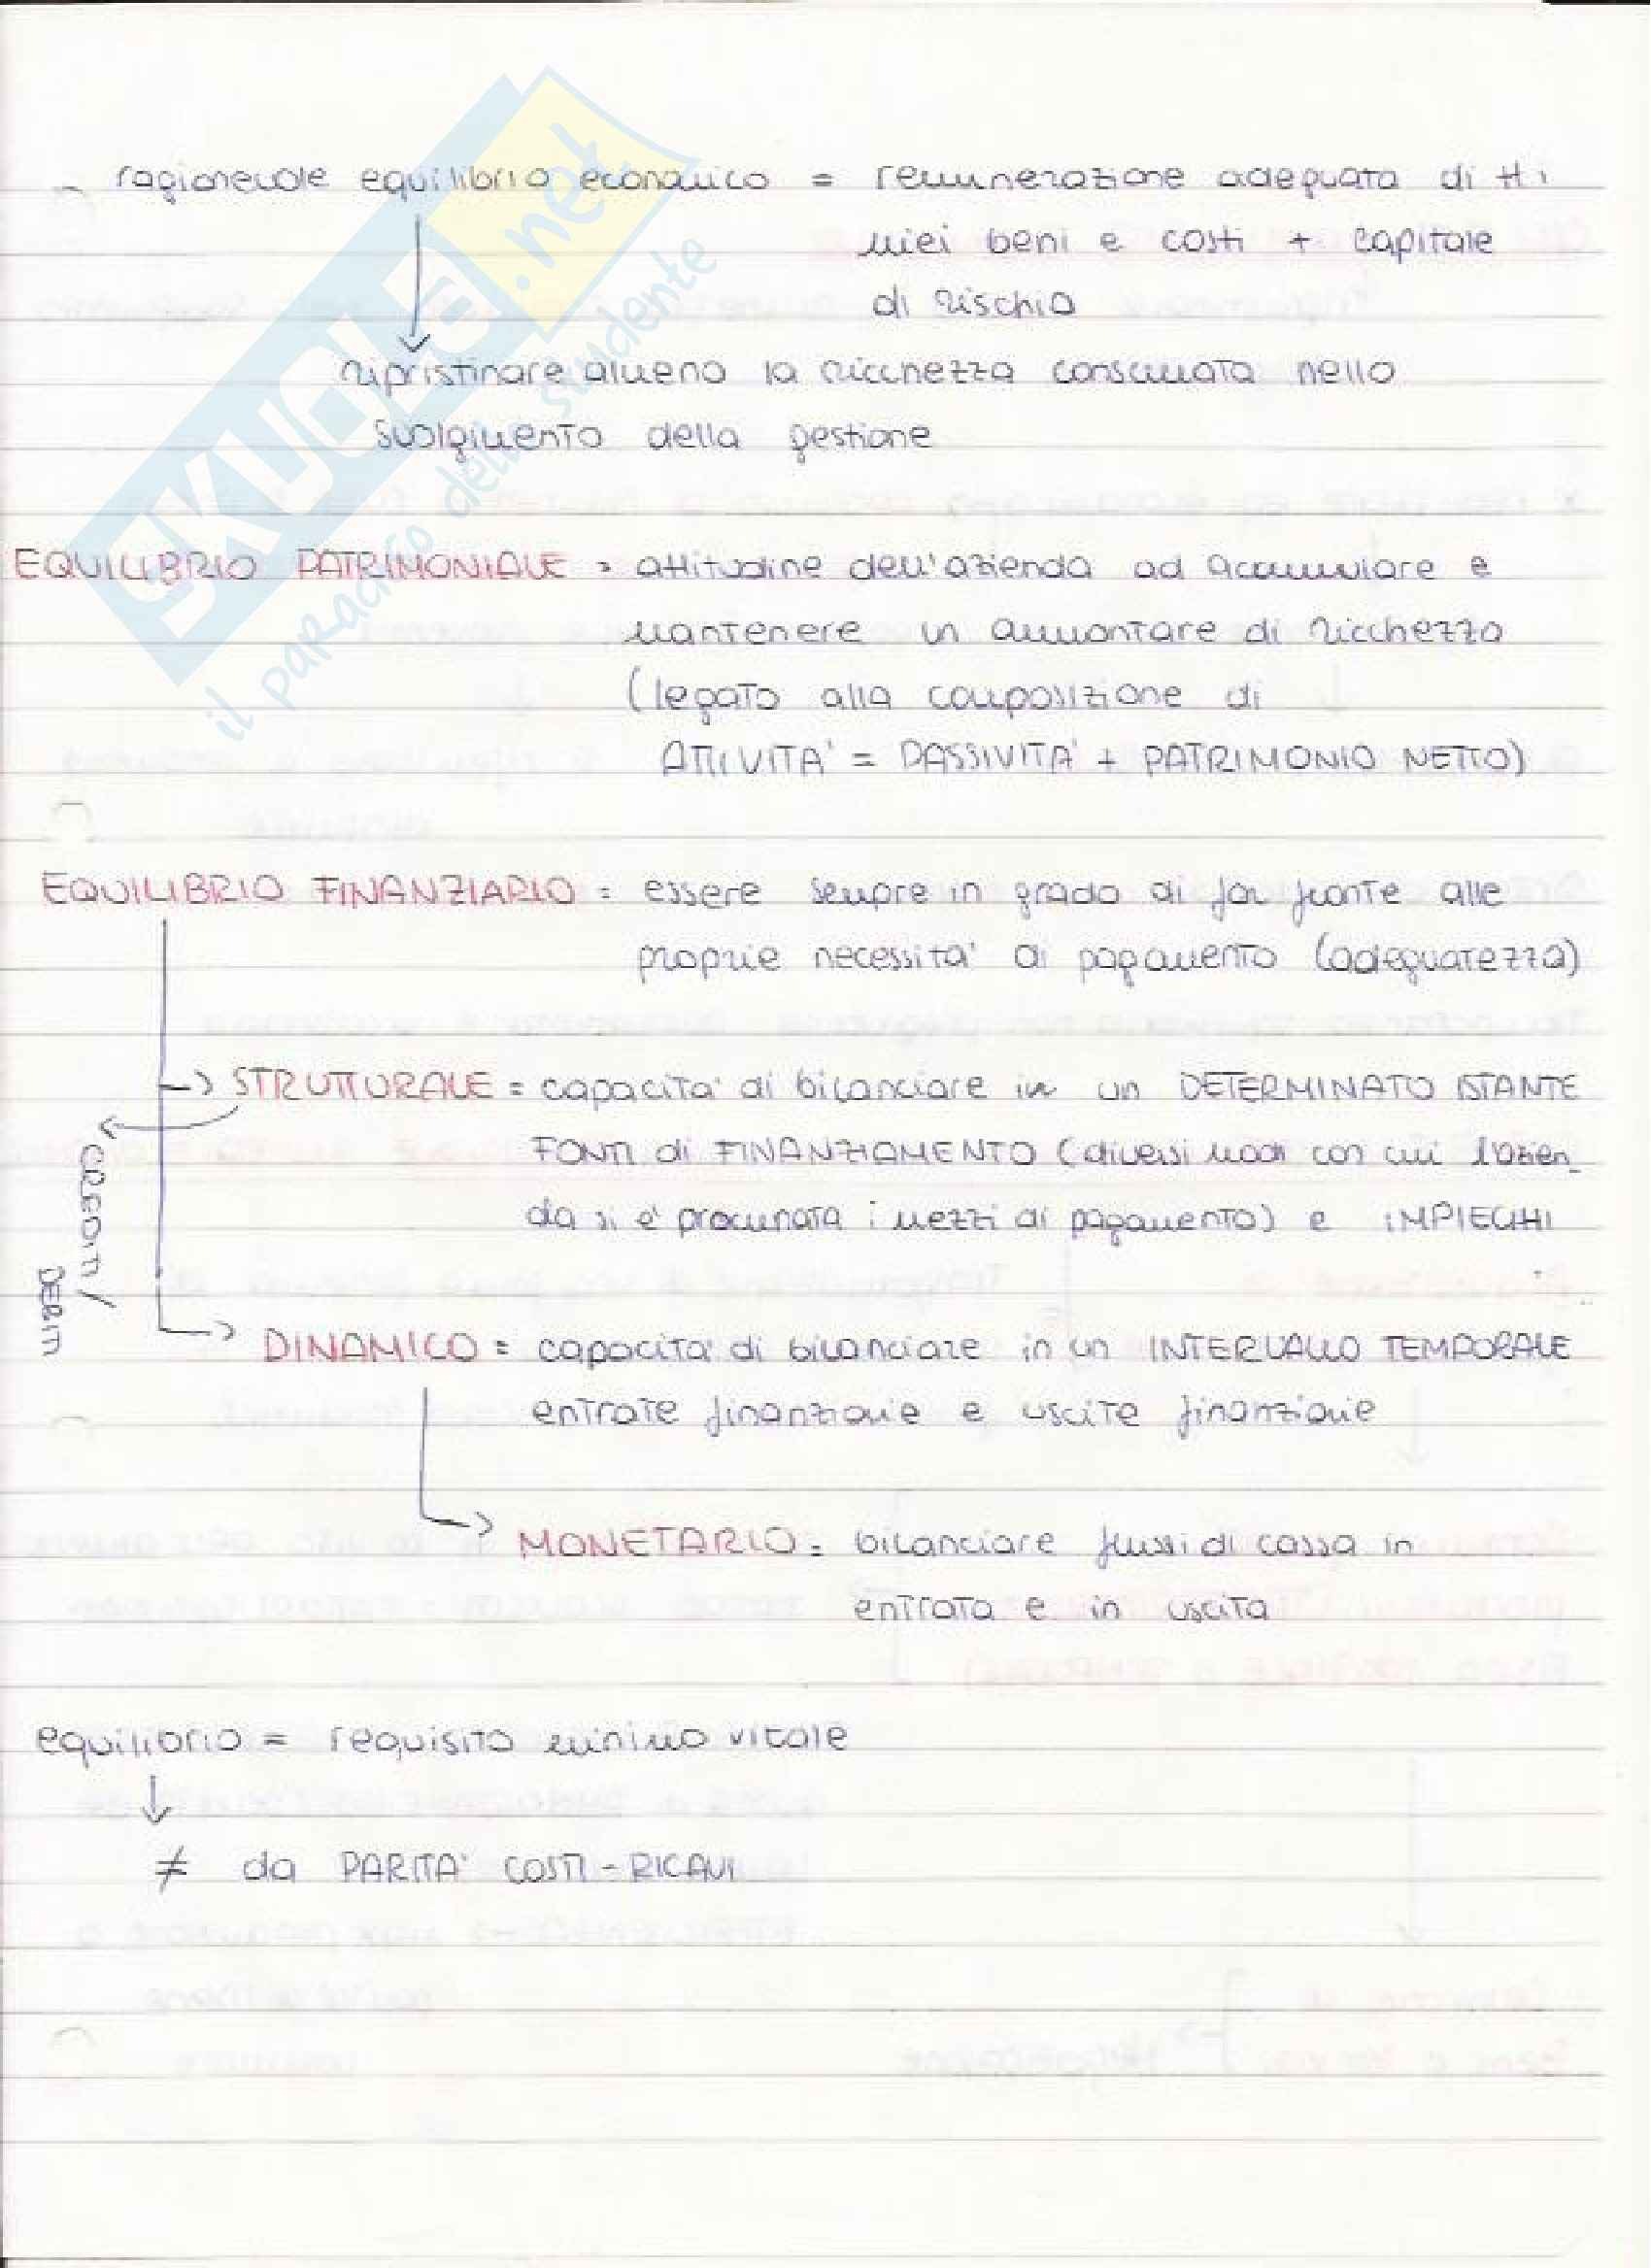 ragionevole equilibrio economico = remunerazione adeguata di tti
miei beni e costi + capitale
di rischio
ripristinare almeno la ricchezza consumata nello
svolgimento della gestione
EQUILIBRIO PATRIMONIALE = attitudine dell'azienda ad accumulare e
mantenere un ammontare di ricchezza
(legato alla composizione di
ATTIVITA' = PASSIVITA' + PATRIMONIO NETTO)
EQUILIBRIO FINANZIARIO = essere sempre in grado di far fronte alle
proprie necessita' di pagamento (adeguatezza)
-> STRUTTURALE = capacita' di bilanciare in un DETERMINATO ISTANTE
FONTI di FINANZIAMENTO (diversi modi con cui l'azien_
da si e' procurata i mezzi di pagamento) e IMPIEGHI
CREDITI /
DEBITI
-> DINAMICO = capacita' di bilanciare in un INTERVALLO TEMPORALE
entrate finanziarie e uscite finanziarie
-> MONETARIO = bilanciare flussi di cassa in
entrata e in uscita
equilibrio = requisito minimo vitale
≠ da PARITA' COSTI - RICAVI
SKUOLA.net
il paradiso dello studente